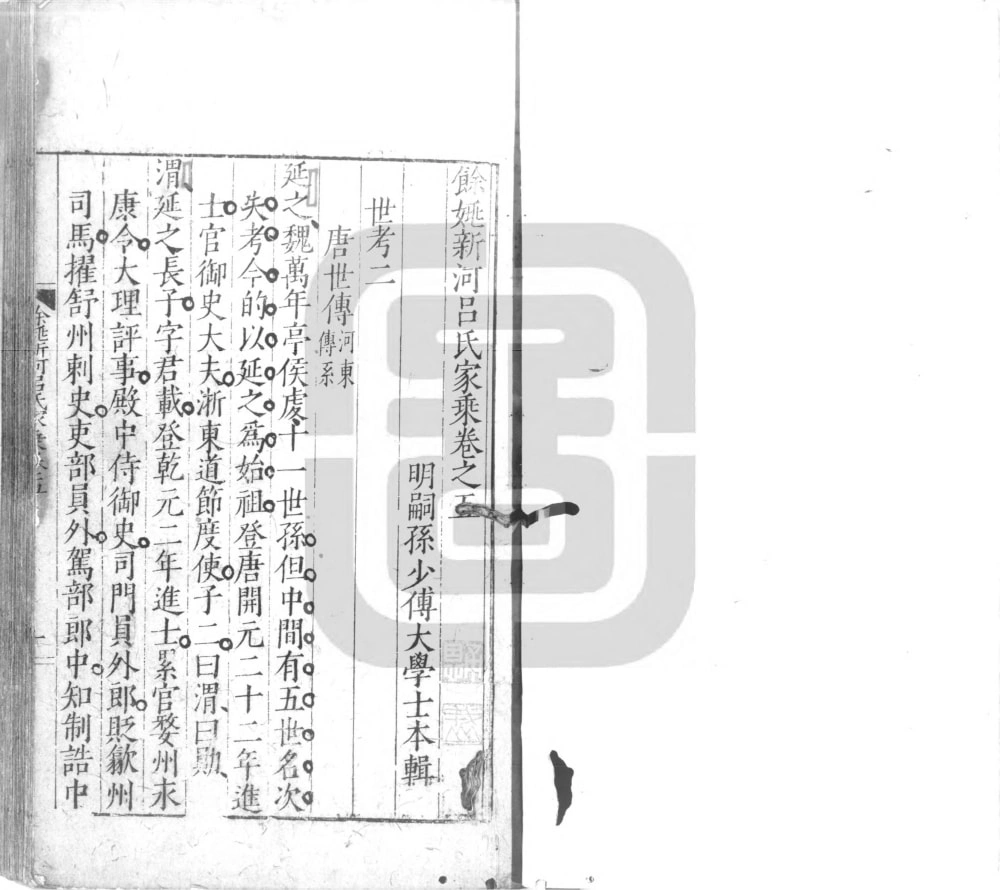 餘姚新河呂氏家乘卷之五
明嗣孫少傅大學士本輯
世考二
唐世傳河東傳系
延之魏萬年亭侯虔十一世孫但中間有五世名次
失考今的以延之爲始祖登唐開元二十二年進
士官御史大夫浙東道節度使子二曰渭曰勛
渭延之長子字君載登乾元二年進士累官婺州永
康令大理評事殿中侍御史司門員外郎貶歙州
司馬擢舒州刺史吏部員外駕部郎中知制誥中